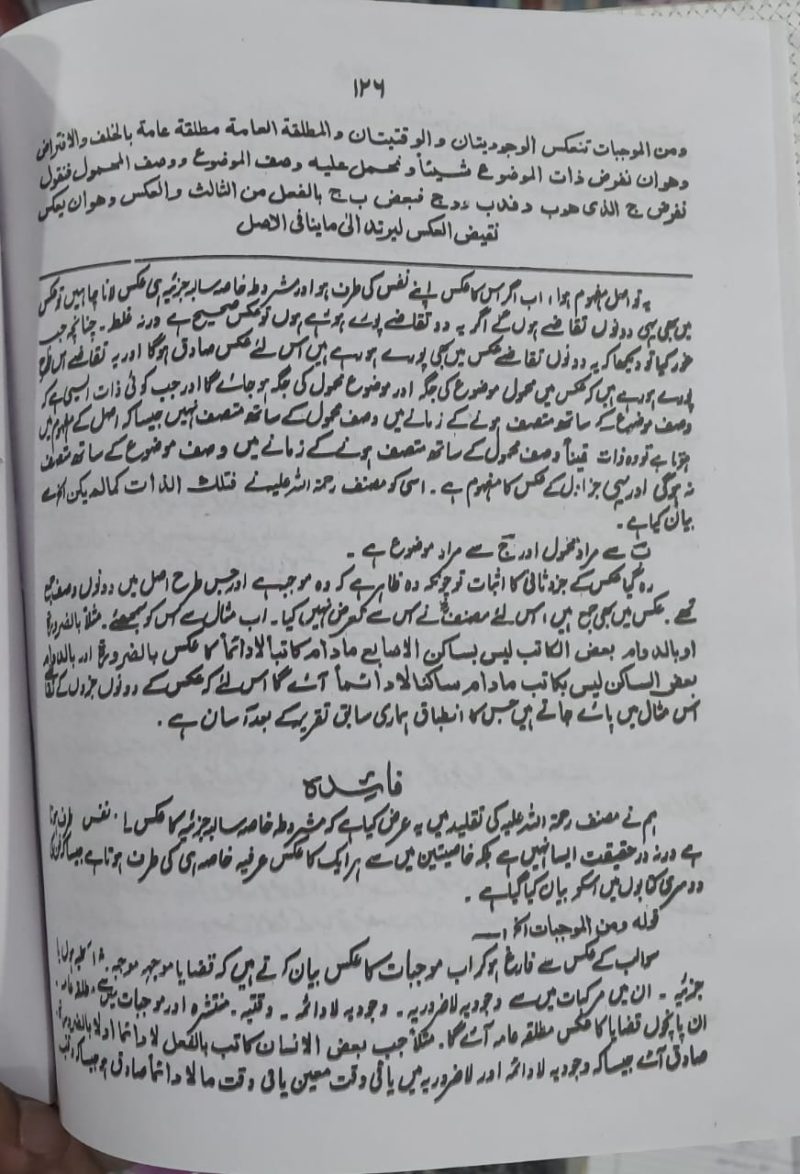 ۱۲۶
ومن الموجبات تنعكس الوجوديتان والوقتيتان والمطلقة العامة مطلقة عامة بالخلف والافتراض
وهو ان نفرض ذات الموضوع شيئاً ونحمل عليه وصف الموضوع ووصف المحمول فنقول
نفرض ج الذى هو ب د فدب ود ج فبعض ب ج بالفعل من الثالث والعكس وهو ان يعكس
نقيض العكس ليرتد الىٰ ماينافى الاصل
یہ تو اصل مفہوم ہوا، اب اگر اس کا عکس اپنے نفس کی طرف ہو اور مشروطہ خاصہ سالبہ جزئیہ ہی عکس لانا چاہیں تو عکس
میں بھی یہی دونوں تقاضے ہوں گے اگر یہ دو تقاضے پورے ہوئے ہوں تو عکس صحیح ہے ورنہ غلط۔ چنانچہ جب
غور کیا تو دیکھا کہ یہ دونوں تقاضے عکس میں بھی پورے ہورہے ہیں اس لئے عکس صادق ہوگا اور یہ تقاضے اس طرح
پورے ہورہے ہیں کہ عکس میں محمول موضوع کی جگہ اور موضوع محمول کی جگہ ہو جائے گا اور جب کوئی ذات ایسی ہے کہ
وصف موضوع کے ساتھ متصف ہونے کے زمانے میں وصف محمول کے ساتھ متصف نہیں جیسا کہ اصل کے مفہوم میں
ہوتا ہے تو وہ ذات یقیناً وصف محمول کے ساتھ متصف ہونے کے زمانے میں وصف موضوع کے ساتھ متصف
نہ ہوگی اور یہی جزء اول کے عکس کا مفہوم ہے۔ اسی کو مصنف رحمۃ اللہ علیہ نے فتلك الذات كما لم يكن الخ سے
بیان کیا ہے۔
بؔ سے مراد محمول اور جؔ سے مراد موضوع ہے۔
رہ گیا عکس کے جزء ثانی کا اثبات تو چونکہ وہ ظاہر ہے کہ وہ موجب ہے اور جس طرح اصل میں دونوں وصف جمع
تھے۔ عکس میں بھی جمع ہیں، اس لئے مصنفؒ نے اس سے تعرض نہیں کیا۔ اب مثال سے اس کو سمجھئے۔ مثلاً بالضرورة
او بالدوام بعض الكاتب ليس بساكن الاصابع مادام كاتباً لا دائماً کا عکس بالضرورة اور بالدوام
بعض الساكن ليس بكاتب مادام ساكنا لا دائماً آئے گا اس لئے کہ عکس کے دونوں جزوں کے تقاضے
اس مثال میں پائے جاتے ہیں جس کا انطباق ہماری سابق تقریر کے بعد آسان ہے۔
فائدہ
ہم نے مصنف رحمۃ اللہ علیہ کی تقلید میں یہ عرض کیا ہے کہ مشروطہ خاصہ سالبہ جزئیہ کا عکس نفس طرف ہوتا
ہے ورنہ در حقیقت ایسا نہیں ہے بلکہ خاصیتین میں سے ہر ایک کا عکس عرفیہ خاصہ ہی کی طرف ہوتا ہے جیسا کہ
دوسری کتابوں میں اسکو بیان کیا گیا ہے۔
قولہ ومن الموجبات الخ
سوالب کے عکس سے فارغ ہو کر اب موجبات کا عکس بیان کرتے ہیں کہ قضایا موجہہ موجبہ کلیہ ہوں یا
جزئیہ۔ ان میں مرکبات میں سے وجودیہ لا ضروریہ۔ وجودیہ لا دائمہ۔ وقتیہ۔ منتشرہ اور موجبات میں سے مطلقہ عامہ۔
ان پانچوں قضایا کا عکس مطلقہ عامہ آئے گا۔ مثلاً جب بعض الانسان كاتب بالفعل لا دائما او لا بالضرورة
صادق آئے جیسا کہ وجودیہ لا دائمہ اور لا ضروریہ میں یا فی وقت معین یا فی وقت ما لا دائماً صادق ہو جیسا کہ